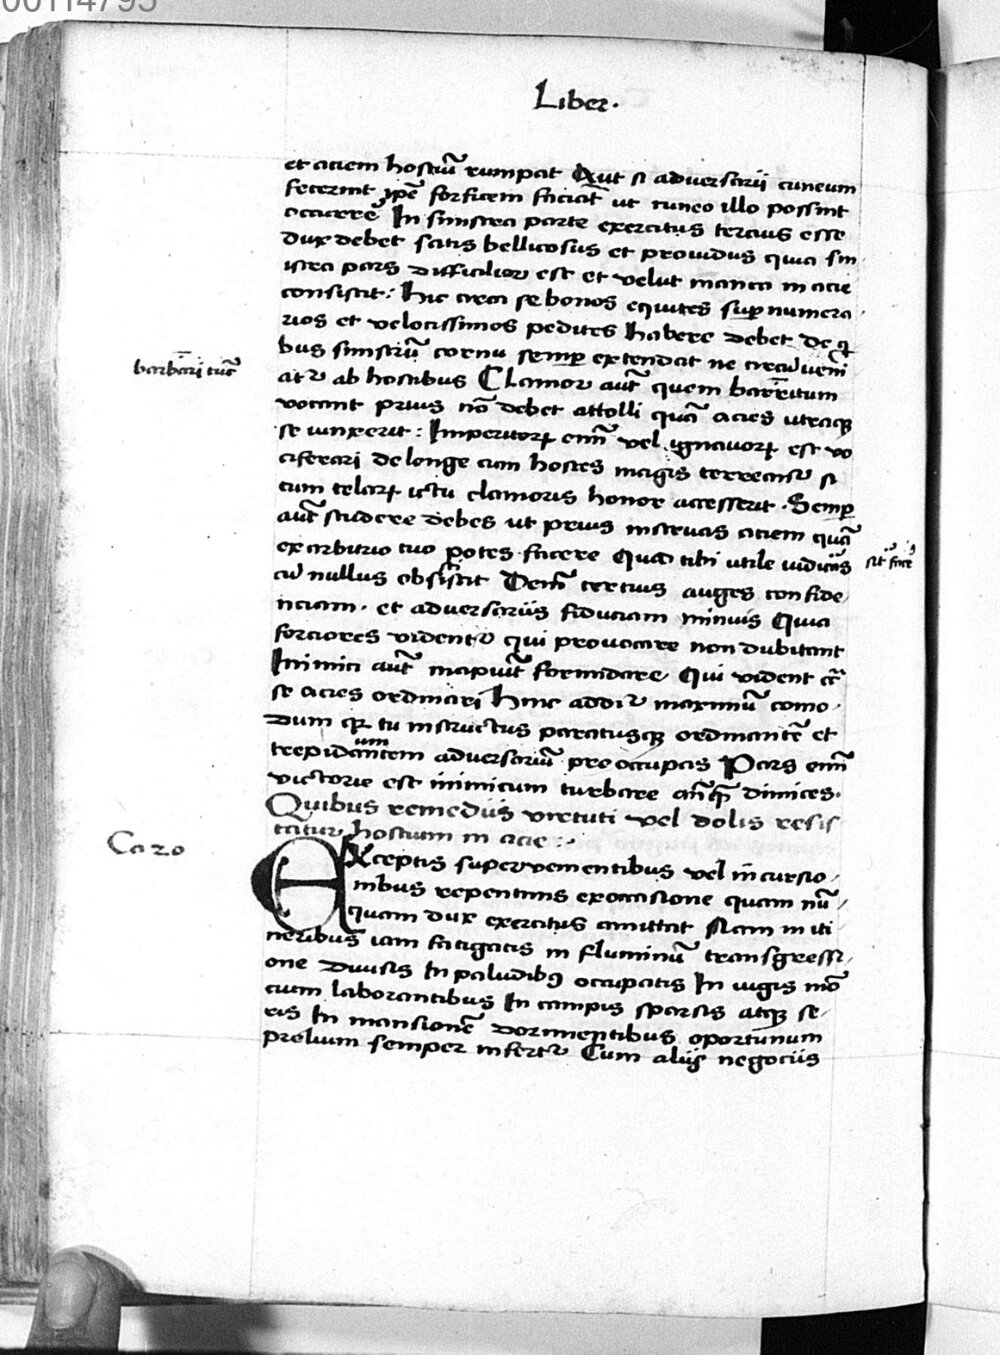 00114795
Liber.
et aciem hostiū rumpat Aut si adversarii cuneum
fecerint ip̄e forficem faciat̄ ut cuneo illo possint
occurrere In sinistra parte exercitus tercius esse
dux debet satis bellicosus et providus quia sin
istra pars difficilior est et velut manca in acie
consistit: Hic circa se bonos equites suꝑ numera
rios et velocissimos pedites habere debet de q
bus sinistrū cornu semꝑ extendat ne circūveni
barbari tuꝰ
atr̄ ab hostibus Clamor aut̄ quem barritum
vocant prius nō debet attolli quā acies utraqꝫ
se iunxerit: Imperitorꝝ enī vel ignavorꝝ est vo
ciferari de longe cum hostes magis terreantr̄ si
cum telorꝝ ictu clamoris honor accesserit. Semꝑ
aut̄ studere debes ut prius instruas aciem quā
ex arbitrio tuo potes facere Quod tibi utile iudiciis
cū nullus obsistit Deinde tertius auges confide
nciam. et adversariis fiduciam minuis Quia
forciores videntr̄ qui provocare non dubitant
Inimici aut̄ incipiūt formidare Qui vident cr̄
se acies ordinari Hinc additr̄ maximū como
dum qꝛ tu instructus paratusqꝫ ordinantē et
trepidantem adversariū preoccupas Pars enī
victorie est inimicum turbare anqꝫ dimices.
Quibus remediis virtuti vel dolis resis
tatur hostium in acie:
Exceptis supervenientibus vel incursio
nibus repentinis ex occasione quam nū
quam dux exercitus amittat Nam in iti
neribus iam fatigatis in fluminū transgressi
one divisis In paludibꝰ occupatis In iugis mō
cium laborantibus In campis sparsis atqꝫ se
ris In mansionē dormientibus oportunum
prelium semper infertr̄ Cum aliis negociis